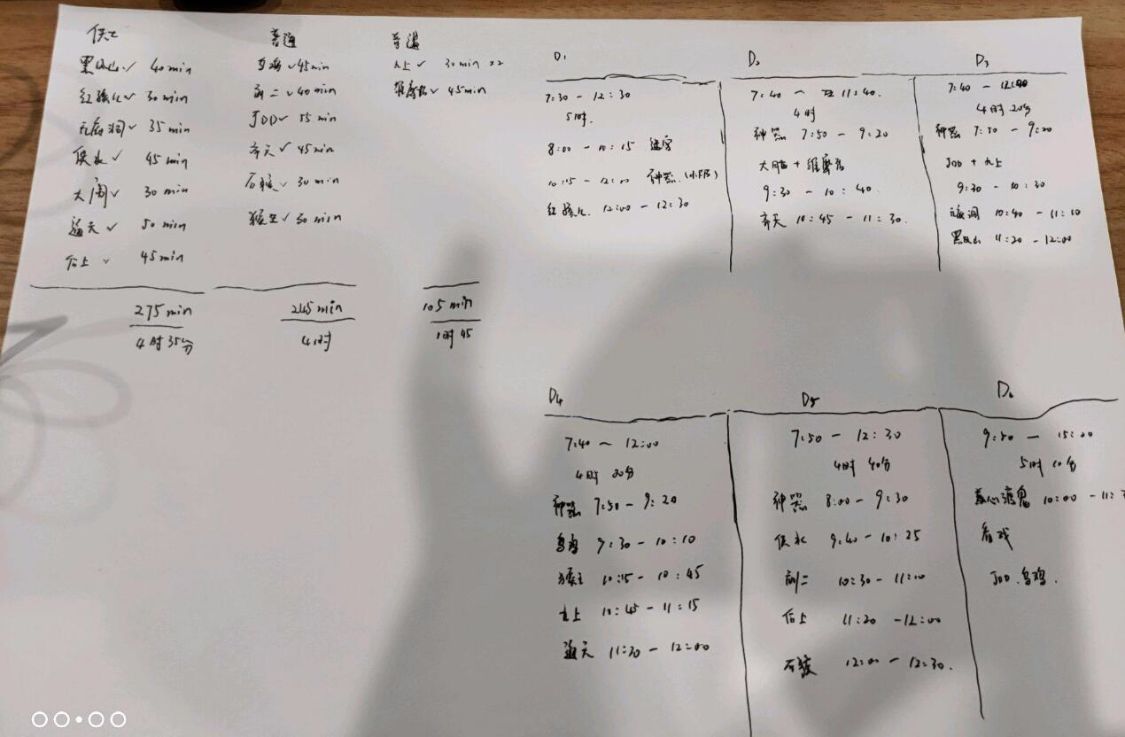 侠士
黑风山✓ 40min
红孩儿✓ 30min
无底洞✓ 35min
侠士✓ 45min
大闹✓ 30min
通天✓ 50min
后上✓ 45min
275min
4时35分
普通
乌鸡✓45min
前二✓40min
JDD✓ 55min
齐天✓ 45min
石猴✓ 30min
猴王✓ 30min
245min
4时
普通
大上✓ 30min x2
维摩诘✓ 45min
105min
1时45
D1
7:30 - 12:30
5时.
8:00 - 10:15
10:15 - 12:00 神器
红孩儿 12:00 - 12:30
D2
7:40 ~ 11:40.
4时
神器 7:50 - 9:20
大闹 + 维摩诘
9:30 - 10:40.
齐天 10:45 - 11:30.
D3
7:40 - 12:00
4时20分
神器 7:50 - 9:20
JDD + 大上
9:30 - 10:30
无底洞 10:40 - 11:10
黑风山 11:20 - 12:00
D4
7:40 ~ 12:00
4时20分
神器 7:50 - 9:20
乌鸡 9:30 - 10:10
猴王 10:15 - 10:45
大上 10:45 - 11:15
通天 11:20 - 12:00
D5
7:50 - 12:30
4时40分
神器 8:00 - 9:30
侠士 9:40 - 10:25
前二 10:30 - 11:10
后上 11:20 - 12:00
石猴 12:00 - 12:30.
D6
9:50 - 15:00
5时10分
10:00 - 11:
看戏
JDD.乌鸡.